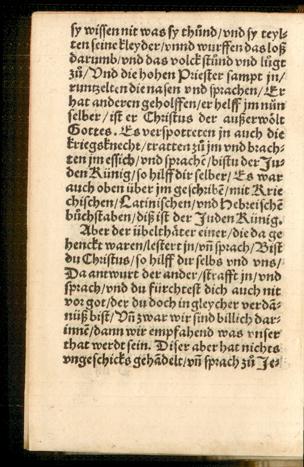 sy wissen nit was sy thůnd/vnd sy teyl⸗
ten seine kleyder/vnnd wurffen das loß
darumb/vnd das volck stůnd vnd lůgt
zů/Vnd die hohen Priester sampt jn/
rumtzelten die nasen vnd sprachen/Er
hat anderen geholffen/er helff jm nůn
selber/ist er Christus der außerwölt
Gottes. Es verspotteten jn auch die
kriegsknecht/tratten zů jm vnd brach⸗
ten jm essich/vnd sprachẽ/bistu der Ju⸗
den Künig/so hilff dir selber/Es war
auch oben über jm geschribẽ/mit Krie
chischen/Latinischen/vnd Hebreischẽ
bůchstaben/diß ist der Juden Künig.
Aber der übelthäter einer/die da ge
henckt waren/lestert jn/vñ sprach/Bist
du Christus/so hilff dir selbs vnd vns/
Da antwurt der ander/strafft jn/vnd
sprach/vnd du fürchtest dich auch nit
vor got/der du doch in gleycher verdã⸗
nüß bist/Vñ zwar wir sind billich dar⸗
innẽ/dann wir empfahend was vnser
that werdt sein. Diser aber hat nichts
vngeschicks gehãdelt/vñ sprach zů Je⸗